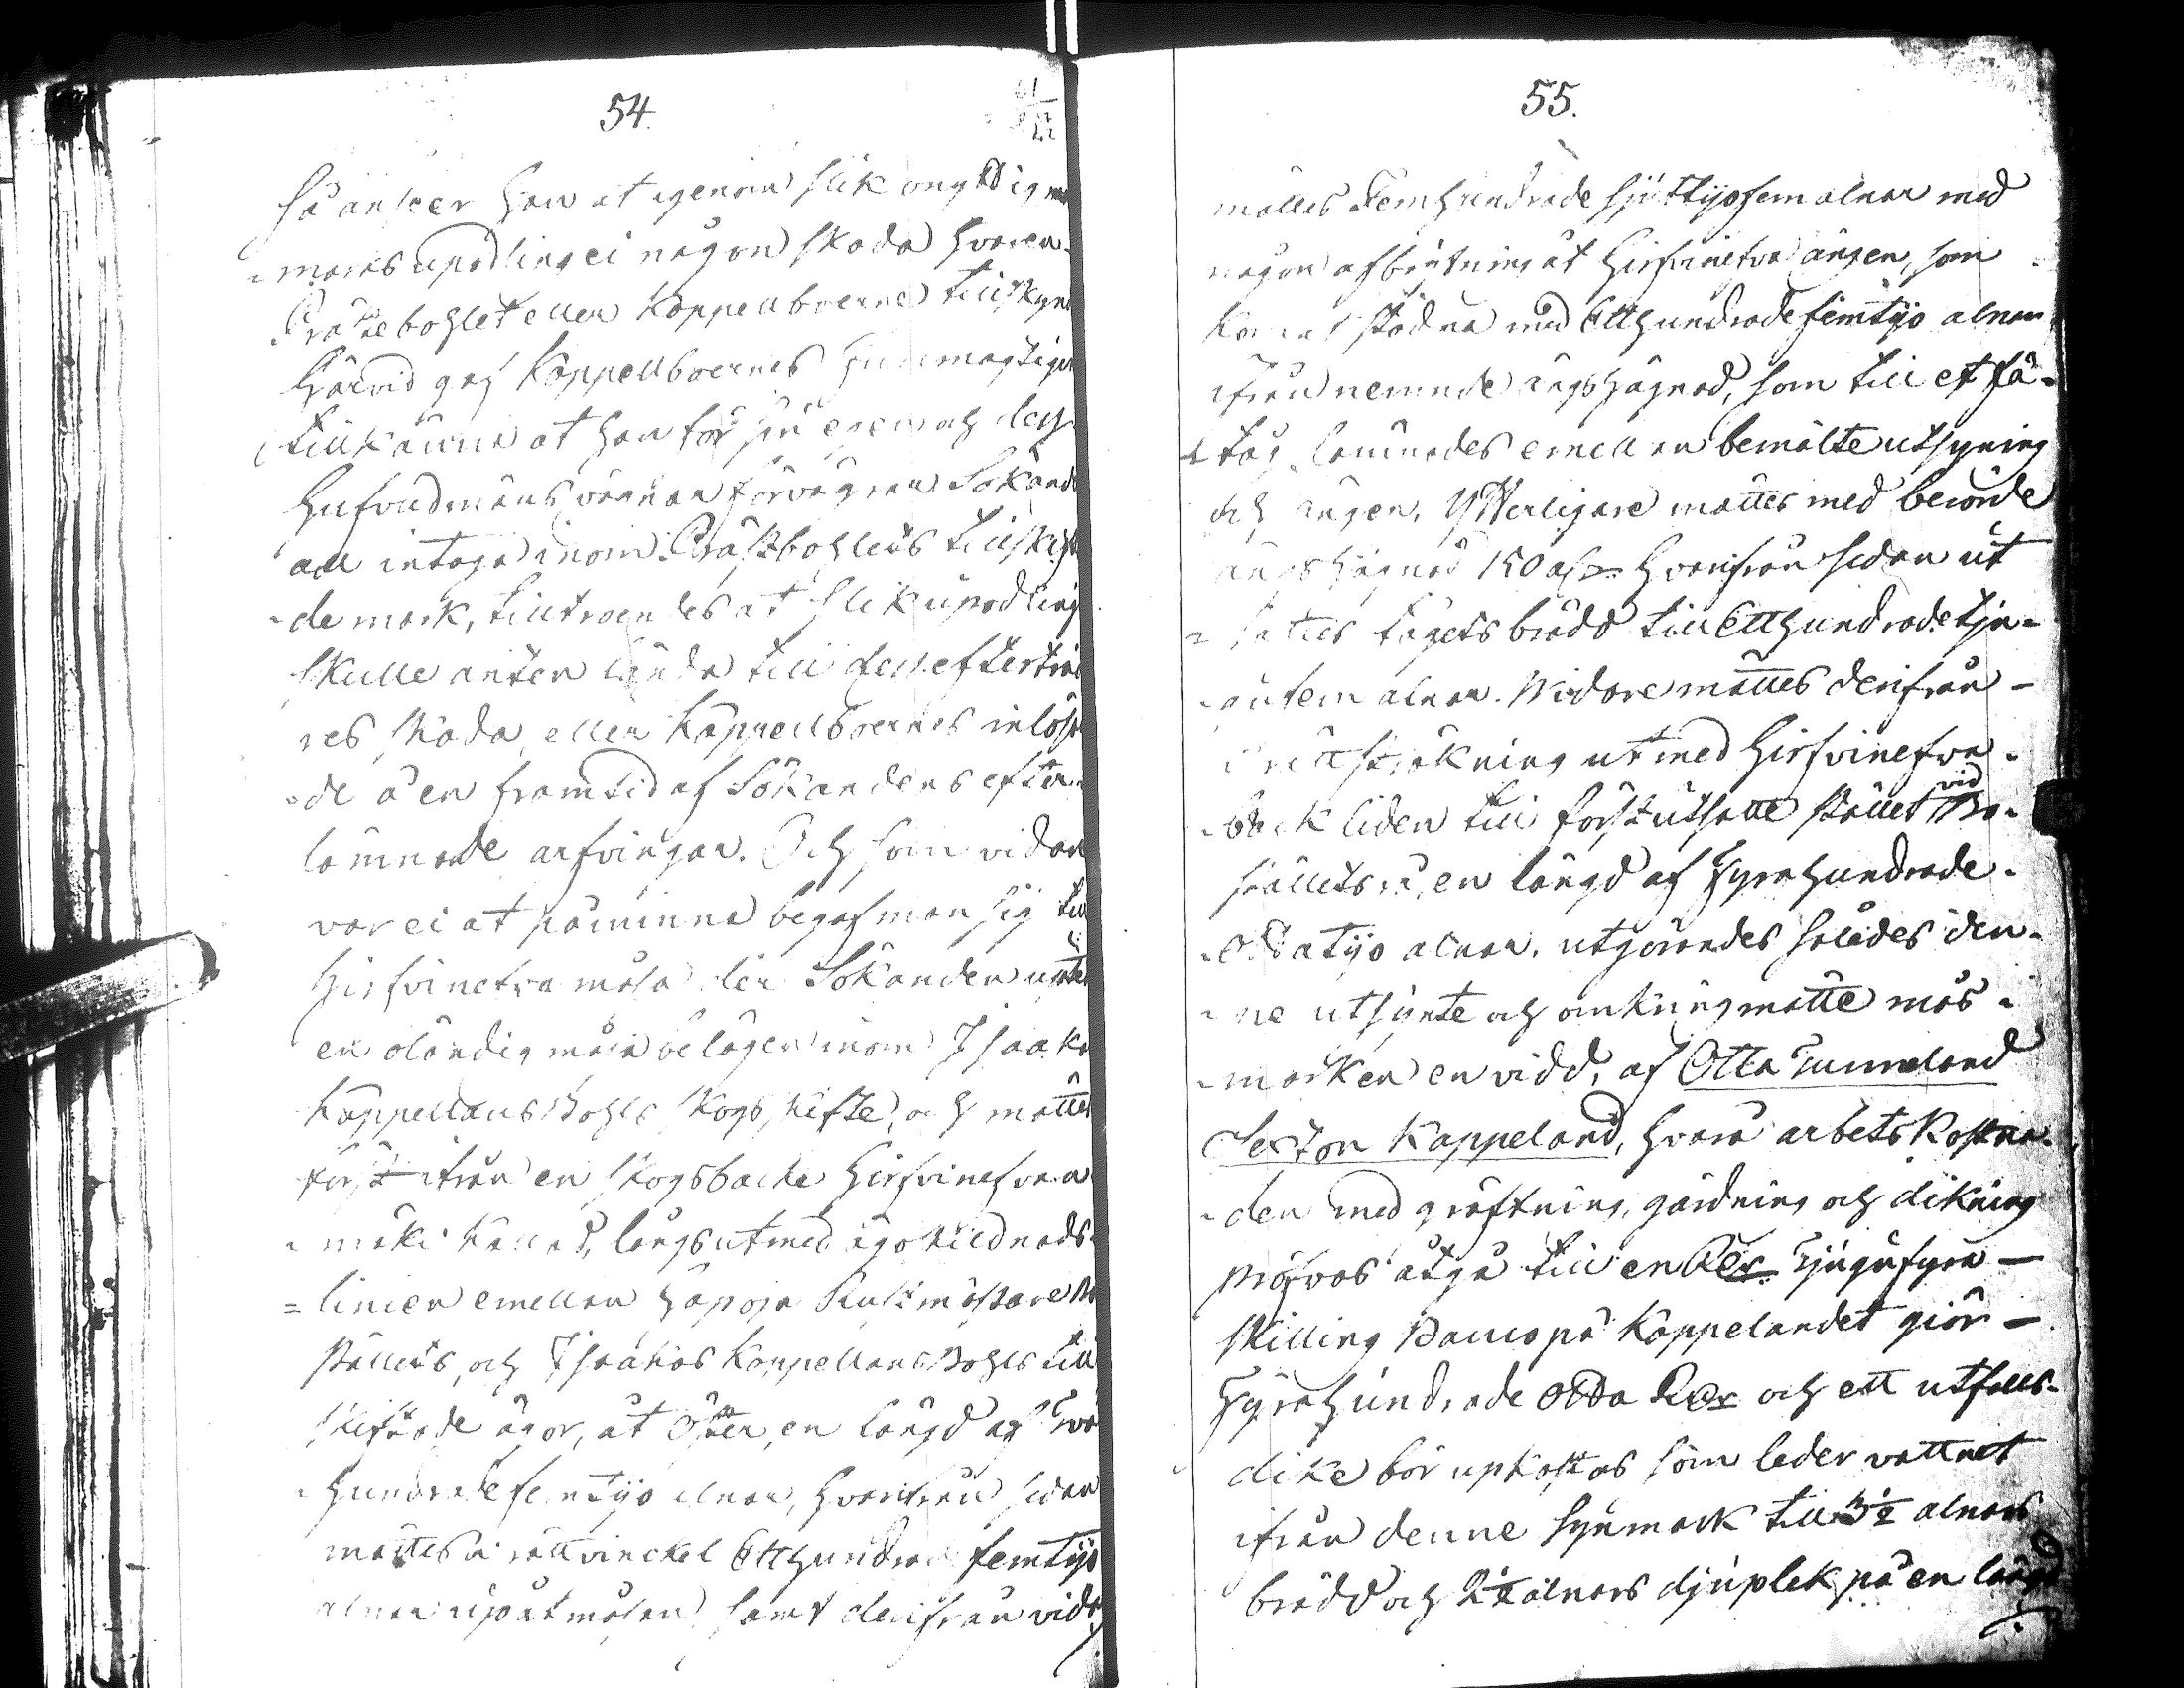 54.
så anser han at igenom slik onyttig
-marks upodling ei någon skada hvarcen
Prästebohlet eller Kappellboerne tillskyn
Härvid gaf Kappellboernes fullmägtige
tillkänna at han för sin egen och dess
hufvudmäns vägnar förvägrar Sökand
all intaga inom Prästbohlets tillskift
-de mark, tilltroendes at slik upodling
skulle anten lända till dess efterträ
res skada, eller Kappellboernes inlösn
-de å en framtid af Sökandens efter
lämnade arfvingar. Och som vidare
var ei at påminna begaf man sig till
Hirfvinefva måsa der Sökanden
en oländig måsa belägen inom Isaaks
Kappellans Bohls skogs skifte, och mättes
först ifrån en skogsbacke Hirfvinefvan
-mäki kallad, längsut med ägoskildnads
=linien emellan Hapoja Rustmästare Bo
ställets, och Isaakas Kappellans Bohls till
skiftade ägor, åt öster, en längd af två
-hundradefemtijo alnar, hvarifrån sedan
mättes i rätt vinckel Etthundrade femtijo
alnar upåt måsan samt derifrån vida
55.
mättes Femhundrade sjuttijofem alnar med
någon afbrytning åt Hirfvinefva ängen, som
kom at stadna med Etthundradefemtijo alnar
ifrån nemnde ängshägnad, som till et fä-
tåg lämnades emellan bemälte utsyning
och ängen. Ytterligare mättes med berörde
ängshägnad 150 alr hvarifrån sedan ut
-sattes tågets brädd till Etthundrade tju-
-gufem alnar. Widare mättes derifrån -
i sträkning ut med Hirfvinefva
-backliden till först utsatte stället vid Bo-
ställets rå, en längd af Fyrahundrade
-ottatijo alnar, utgörandes således den-
-ne utsynte och omkringmätte mås-
-marken en vidd, af Otta Tunneland
Sexton Kappeland, hvarå arbetskostna-
-den med gräftning, gärdning och dikning
pröfvas åtgå till en Rdr Tjugufyra —
skilling Banco på Kappelandet giör —
Fyrahundrade otta Rdr och ett utfalls-
dike bör upkastas som leder vattnet
ifrån denne synmark till 3½ alnars
brädd och 2½ alnars djuplek på en längd